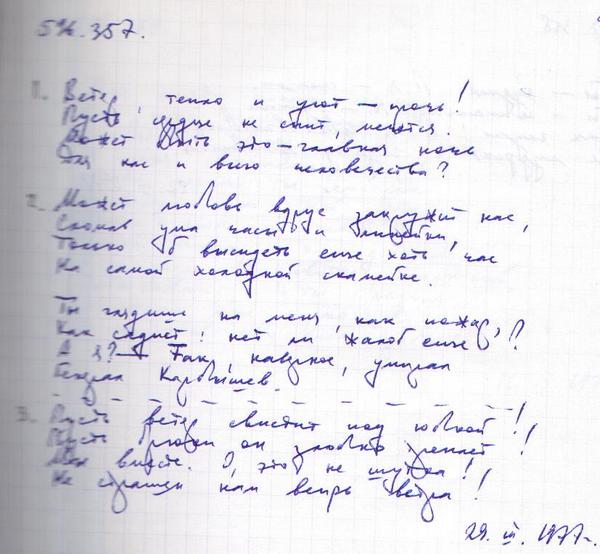 594.357.
1. Ветер, тепло и уют – прочь!
Пусть сердце не спит, мечется.
Может быть это – главная ночь
Для нас и всего человечества?
2. Может любовь вдруг закружит нас,
Сломав ума часы и линейки,
Только б высидеть ещё хоть час
На самой холодной скамейке.
Ты глядишь на меня, как пожар,
Как следует: нет ли жалоб ещё?
А я? – Так, наверное, умирал
Генерал Карбышев.
3. Пусть ветер свистит под юбкой!
Пусть он злобно треплет!
Мы вместе. О, это не шутка!
Не страшен нам вепрь ветра!
29. III. 1977г.